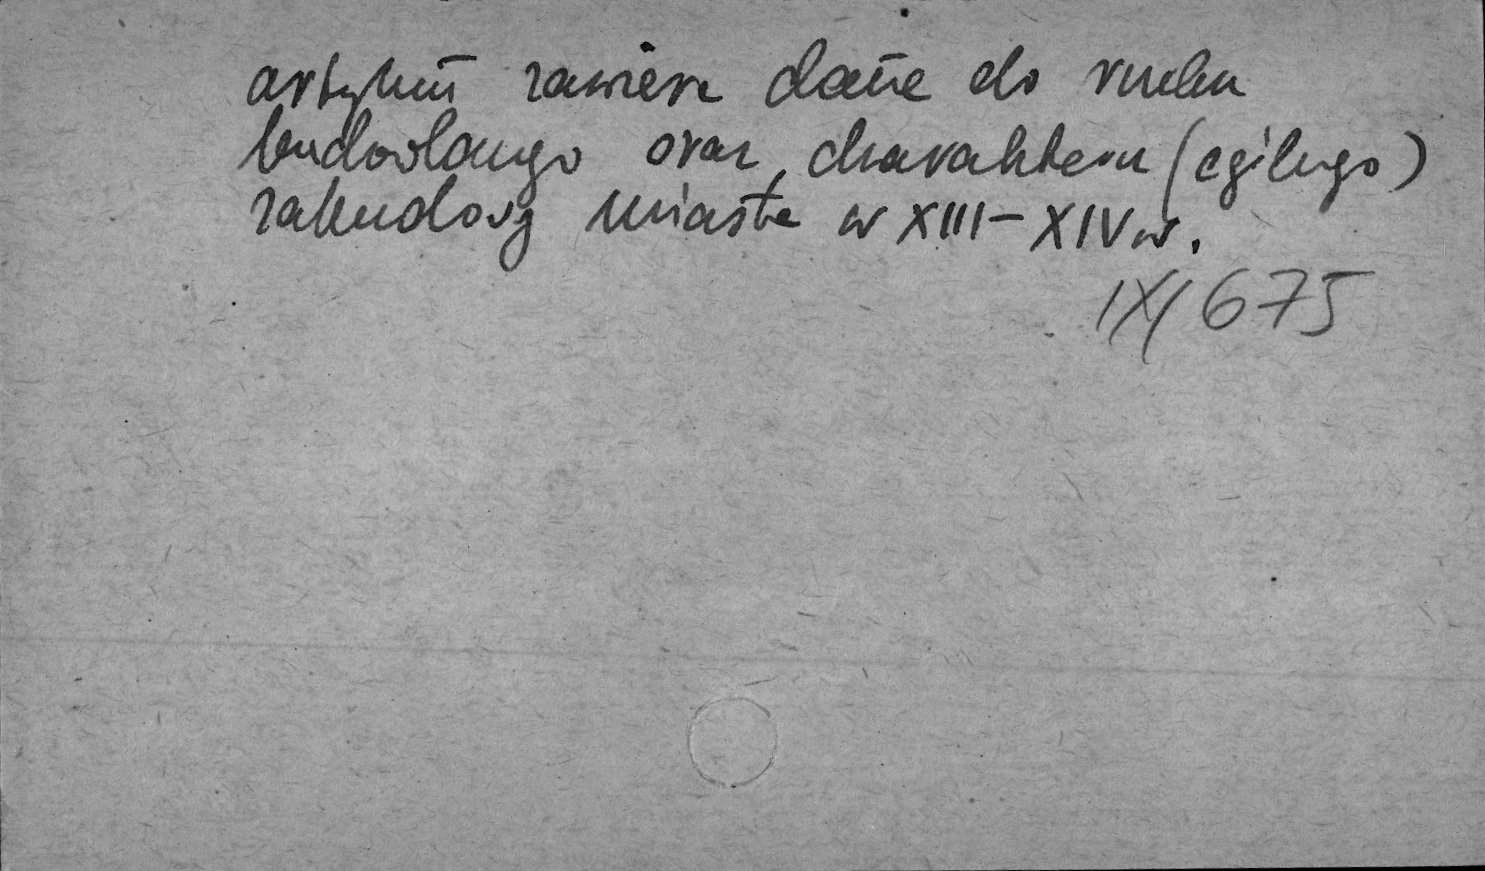 artykuł zawiera dane do ruchu
budowlanego oraz charakteru (cgilngo)
zabudowy miasta w XIII-XIV w.
IX/675